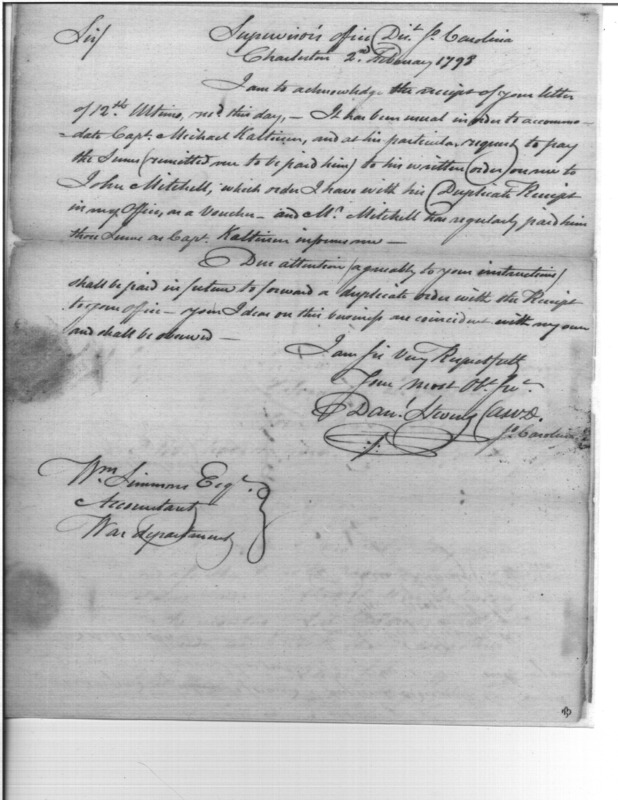 Sir/ Supervisor's office Dist. So. Carolina
Charleston 2d. February 1798
I am to acknowledge the receipt of your letter
of 12th. Ultimo, recd this day, — It has been usual in order to accommo-
-date Capt. Michael Kalteisen, and at his particular request to pay
the Sums (remitted me to be paid him) to his written order on me to
John Mitchell; which order I have with his Duplicate Receipt
in my Office, as a Voucher — and Mr. Mitchell has regularly paid him
those Sums as Capt. Kalteisen informs me —
Due attention (agreeably to your instructions)
shall be paid in future to forward a duplicate order with the Receipt
to your office — your Ideas on this business are coincident with my own
and shall be observed —
I am Sir Very Respectfully
Your most Obt. Svt.
Danl. Stevens
So. Carolina
Wm Simmons Esqr.
Accountant
War department